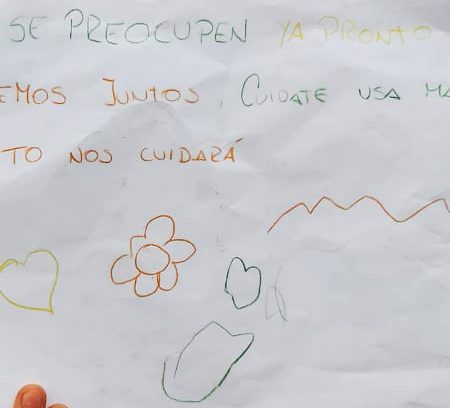 SE PREOCUPEN YA PRONTO
EMOS JUNTOS, CUIDATE USA MA
TO NOS CUIDARÁ